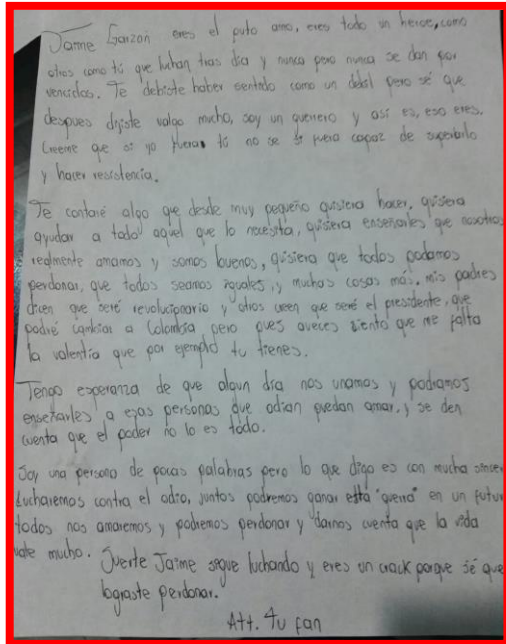 Jaime Garzón eres el puto amo, eres todo un heroe, como
otros como tú que luchan tras dia y nunca pero nunca se dan por
vencidos. Te debiste haber sentido como un debil pero sé que
despues dijiste valgo mucho, soy un guerrero y así es, eso eres.
Creeme que si yo fueras tú no se si fuera capaz de superarlo
y hacer resistencia.
Te contaré algo que desde muy pequeño quisiera hacer, quisiera
ayudar a todo aquel que lo necesita, quisiera enseñarles que nosotros
realmente amamos y somos buenos, quisiera que todos podamos
perdonar, que todos seamos iguales, y muchas cosas más. mis padres
dicen que seré revolucionario y otros creen que seré el presidente, que
podré cambiar a Colombia pero pues aveces siento que me falta
la valentía que por ejemplo tu tienes.
Tengo esperanza de que algun día nos unamos y podramos
enseñarles a esas personas que odian puedan amar, y se den
cuenta que el poder no lo es todo.
Soy una persona de pocas palabras pero lo que digo es con mucha
Lucharemos contra el odio, juntos podremos ganar esta "guerra" en un
todos nos amaremos y podremos perdonar y darnos cuenta que la vida
vale mucho. Suerte Jaime sigue luchando y eres un crack porque sé que
lograste perdonar.
Att. tu fan